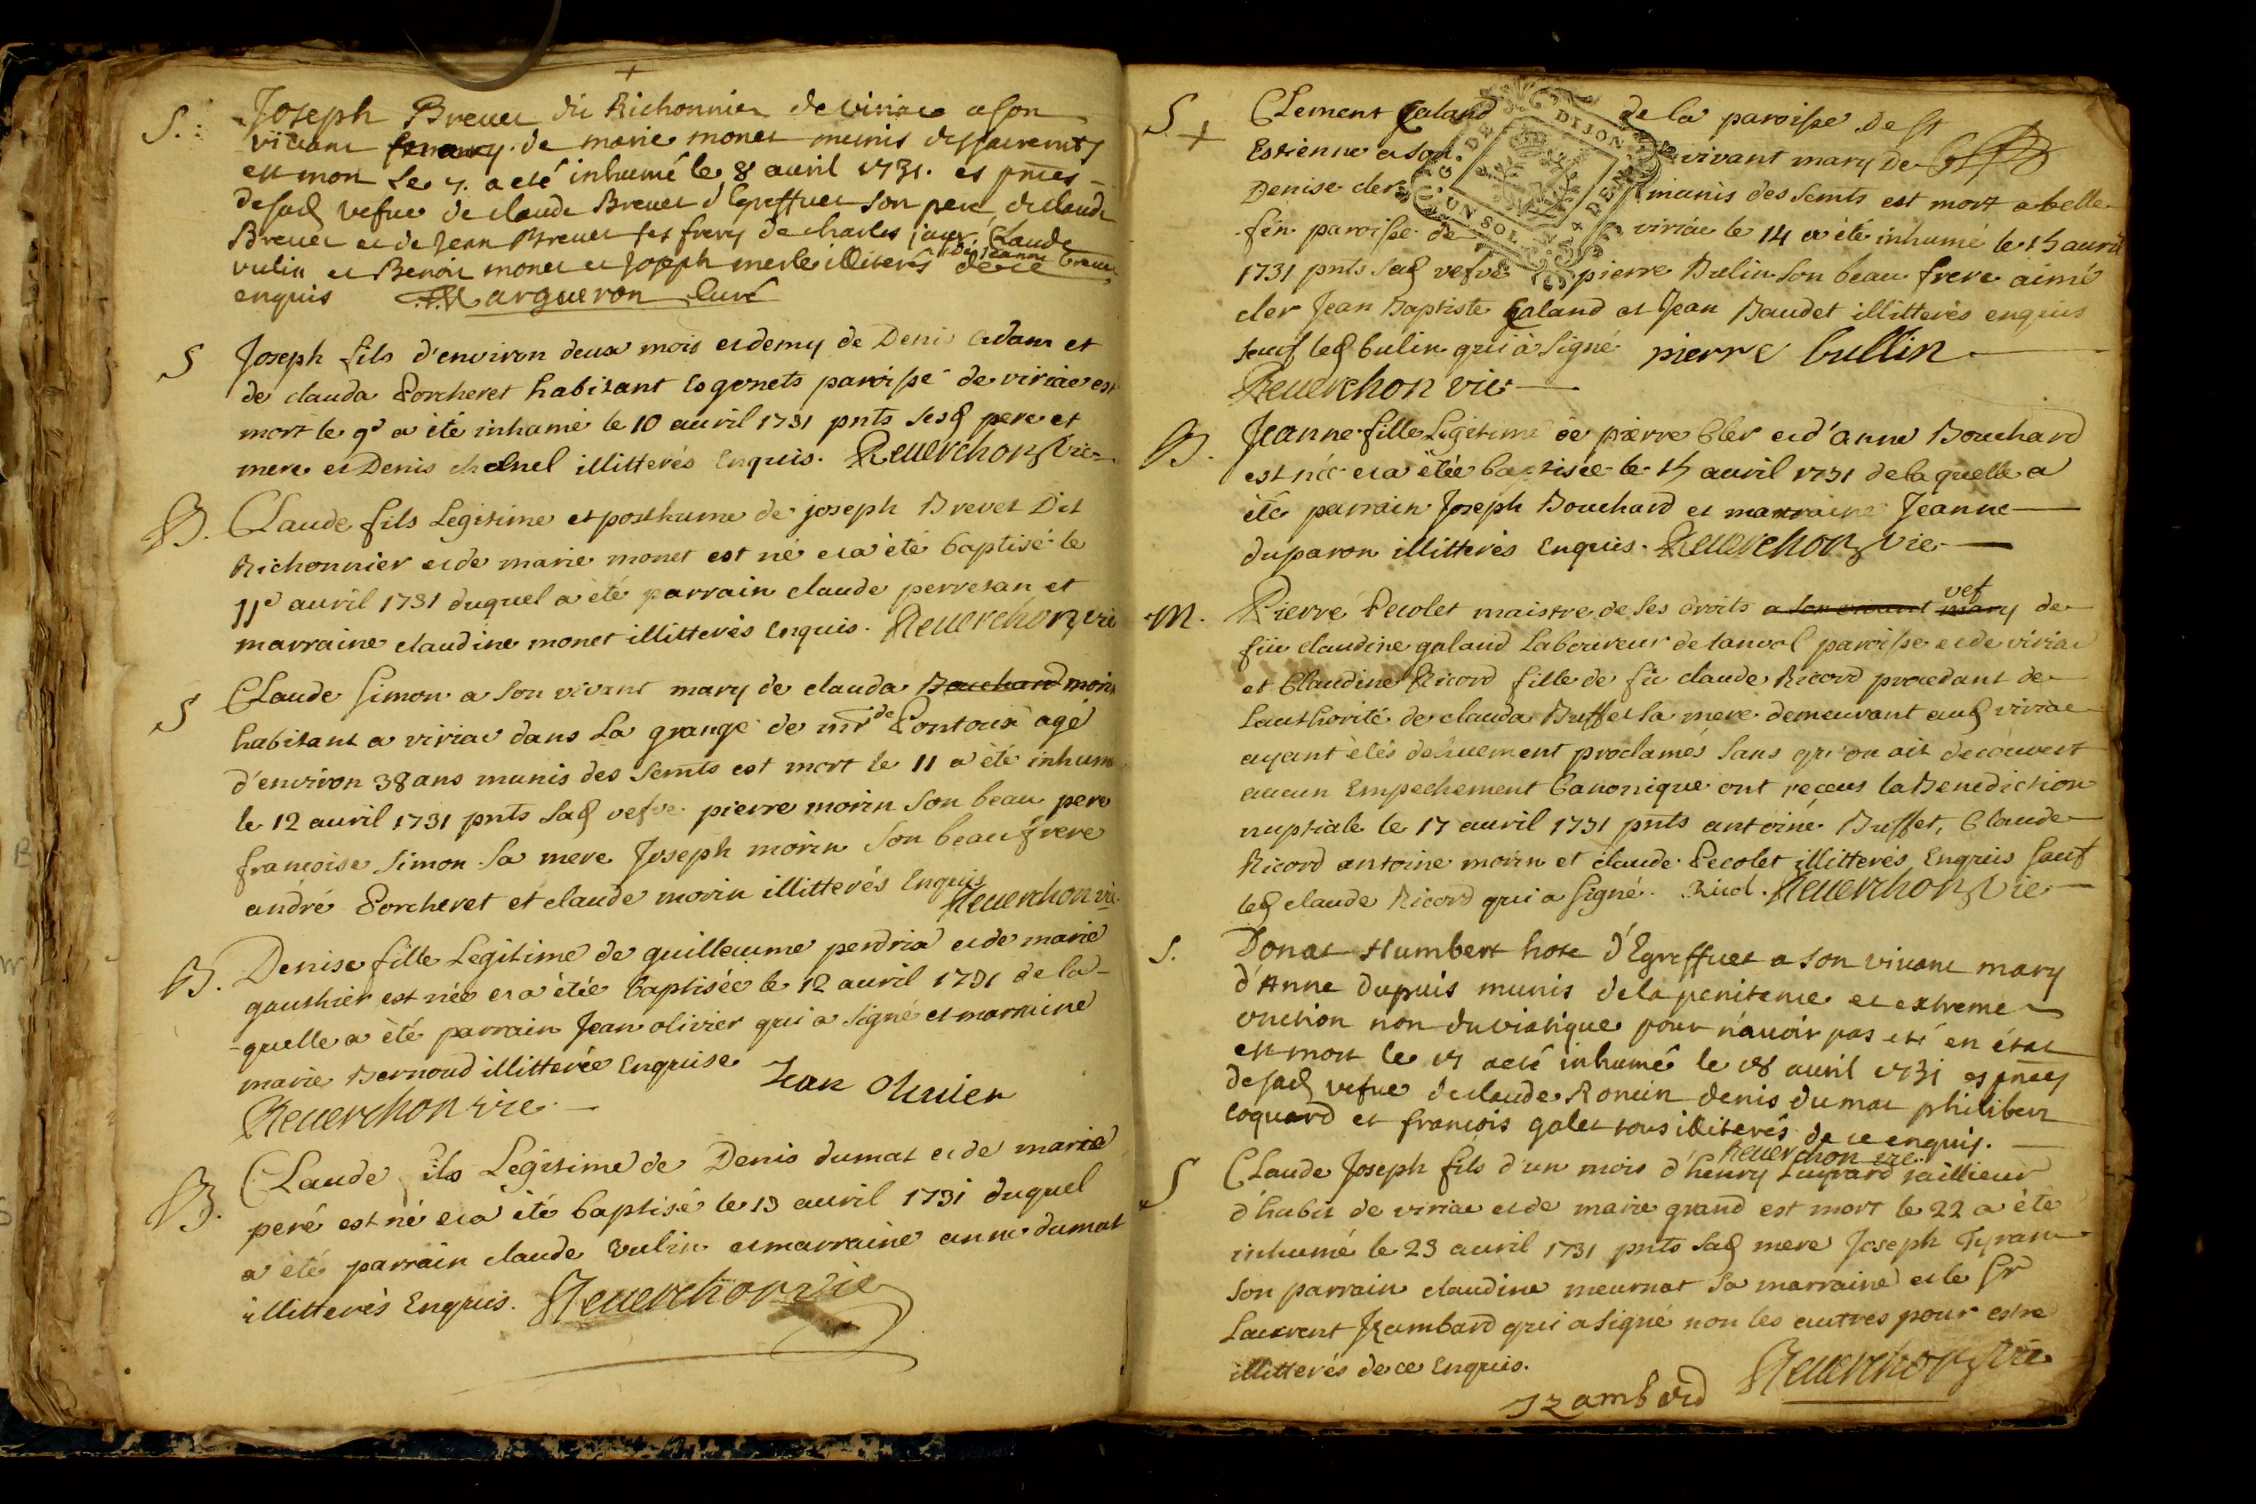 S. Joseph Brevet dit Richonnier de viriac a son
vivant mary de marie monet munis des sacrements
est mort le 7. a eté inhumé le 8 avril 1731. es pntes
de sad vefve de claude Brevet d'Egreffuet son pere de claude
Brevet et de Jean Brevet ses freres de charles claude
vulin et Benoit monet et Joseph merle illiterés de ce
enquis Margueron curé
S Joseph fils d'environ deux mois et demy de Denis adam et
de clauda Porcheret habitant es genets paroisse de viriac est
mort le 9e a été inhumé le 10 avril 1731 pnts sesd pere et
mere et Denis chanel illitterés Enquis. Reverchon Vic
B. Claude fils Legitime et posthume de joseph Brevet Dit
Richonnier et de marie monet est né et a été baptisé le
11e avril 1731 duquel a été parrain claude perretan et
marraine claudine monet illitterés Enquis. Reverchon vic
S Claude Simon a son vivant mary de clauda Bouchard morin
habitant a viriac dans la grange de mr de Pontoux agé
d'environ 38 ans munis des Semts est mort le 11 a été inhumé
le 12 avril 1731 pnts sad vefve pierre morin son beau pere
francoise Simon sa mere Joseph morin son beau frere
andré Porcheret et claude morin illitterés Enquis
Reverchon vic
B. Denise fille Legitime de guillaume perdrix et de marie
gauthier est née et a étée baptisée le 12 avril 1731 de la-
quelle a été parrain Jean olivier qui a signé et marraine
marie Bernoud illitterée Enquise Jean Olivier
Reverchon vic
B. Claude fils Legitime de Denis dumat et de marie
peré est né et a été baptisé le 13 avril 1731 duquel
a été parrain claude vulin et marraine anne dumat
illitterés Enquis. Reverchon vic
S. + Clement Galand de la paroisse De St
Estienne a son vivant mary de
Denise cler munis des Semts est mort a belle
fin paroisse de viriac le 14 a été inhumé le 15 avril
1731 pnts sad vefve pierre Bulin son beau frere aimé
cler Jean Baptiste Galand et Jean Baudet illitterés enquis
sauf led bulin qui a signé pierre bullin
Reverchon vic
G. DE DIJON UN SOL 4 DEN
B. Jeanne fille Legitime de pierre Cler et d'anne Bouchard
est née et a étée baptisée le 15 avril 1731 de laquelle a
été parrain Joseph Bouchard et marraine Jeanne
duparon illitterés Enquis. Reverchon Vic
M. Pierre Pecolet maistre de ses droits a son vivant mary vef de
füe claudine galand Laboureur de paroisse et de viriac
et Claudine Ricord fille de fü claude Ricord procedant de
Lauthorité de clauda Buffet sa mere demeurant aud viriac
ayant étés dehuement proclamés sans qu'on ait decouvert
aucun Empechement Canonique ont reçeus la Benediction
nuptiale le 17 avril 1731 pnts antoine Buffet, Claude
Ricord antoine morin et claude Pecolet illitterés Enquis sauf
led claude Ricord qui a signé. Ricol. Reverchon Vic
S. Donat Humbert hote d'Egreffuet a son vivant mary
d'Anne Dupuis munis de la penitence et extreme
onction non du viatique pour n'avoir pas eté en état
est mort le 17 a eté inhumé le 18 avril 1731 es pntes
de sad vefve de claude Roncin denis dumat philibert
coquard et francois galet tous illiterés de ce enquis.
Reverchon vic
S Claude Joseph fils d'un mois d'henry taillieur
d'habit de viriac et de marie grand est mort le 22 a été
inhumé le 23 avril 1731 pnts sad mere Joseph Tyrand
son parrain claudine meurnat sa marraine et le Sr
Laurent Jzambard qui a signé non les autres pour estre
illitterés de ce Enquis.
Jzambard Reverchon Vic